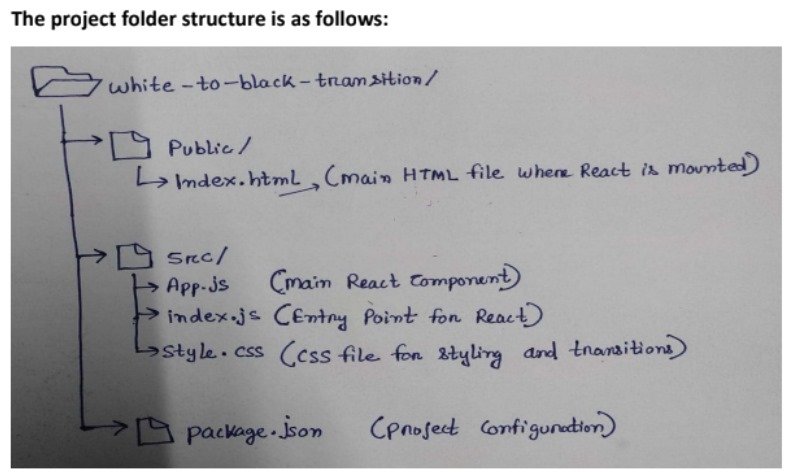 The project folder structure is as follows:
white-to-black-transition/
Public/
Index.html, (main HTML file where React is mounted)
Src/
App.js (main React Component)
index.js (Entry Point for React)
Style.css (css file for styling and transitions)
package.json (project Configuration)